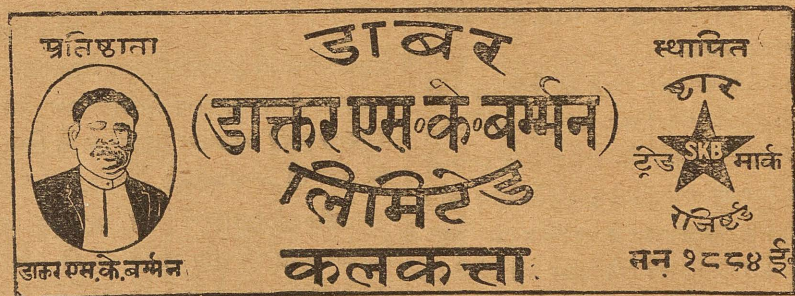 प्रतिष्ठाता
डाक्तर एस.के.बर्म्मन
डाबर
(डाक्तर एस॰के॰बर्म्मन)
लिमिटेड
कलकत्ता
स्थापित
ष्टार
SKB
ट्रेड मार्क
रेजिष्टर्ड
सन् १८८४ ई.